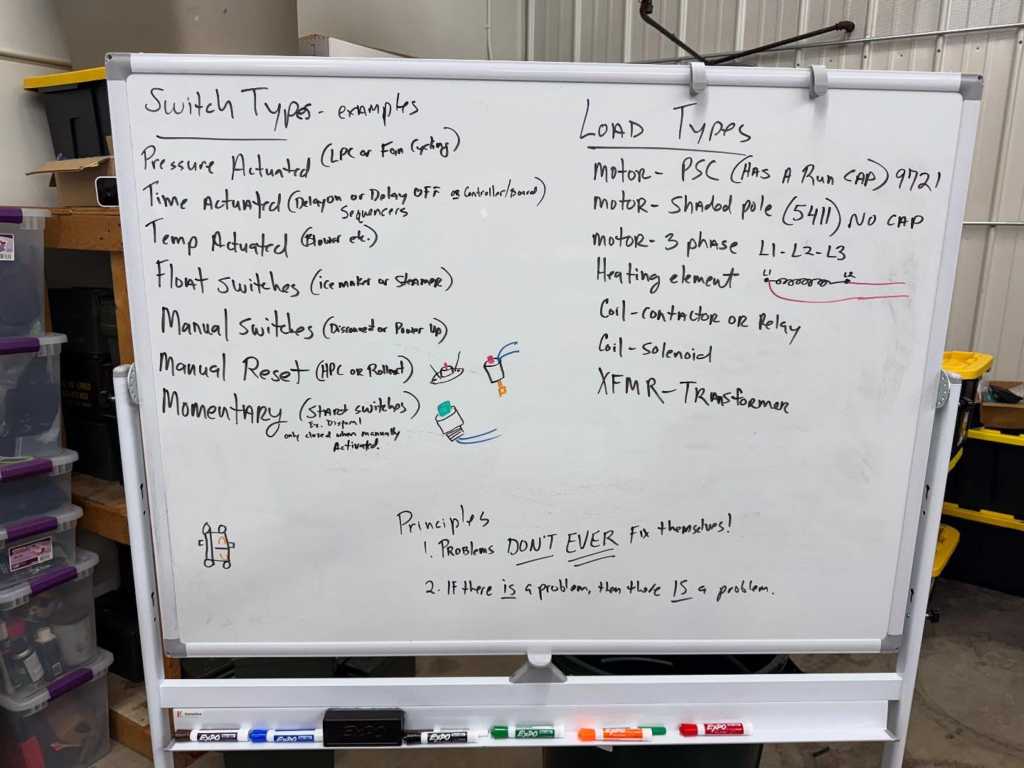 Switch Types - examples
Pressure Actuated (LPC or Fan Cycling)
Time Actuated (Delay on or Delay OFF or Controller/Board)
Sequencers
Temp Actuated (Blower etc.)
Float switches (ice maker or Steamer)
Manual switches (Disconnect or Power Up)
Manual Reset (HPC or Rollout)
Momentary (Start switches)
Ex. Disposal
only closed when manually
Activated.
LOAD TYPES
Motor - PSC (HAS A Run CAP) 9721
Motor - Shaded pole (5411) NO CAP
Motor - 3 phase L1-L2-L3
Heating element L1 L2
Coil - contactor OR Relay
Coil - Solenoid
XFMR - TRansformer
Principles
1. Problems DON'T EVER Fix themselves!
2. If there is a problem, then there IS a problem.
EXPO EXPO EXPO EXPO EXPO EXPO EXPO